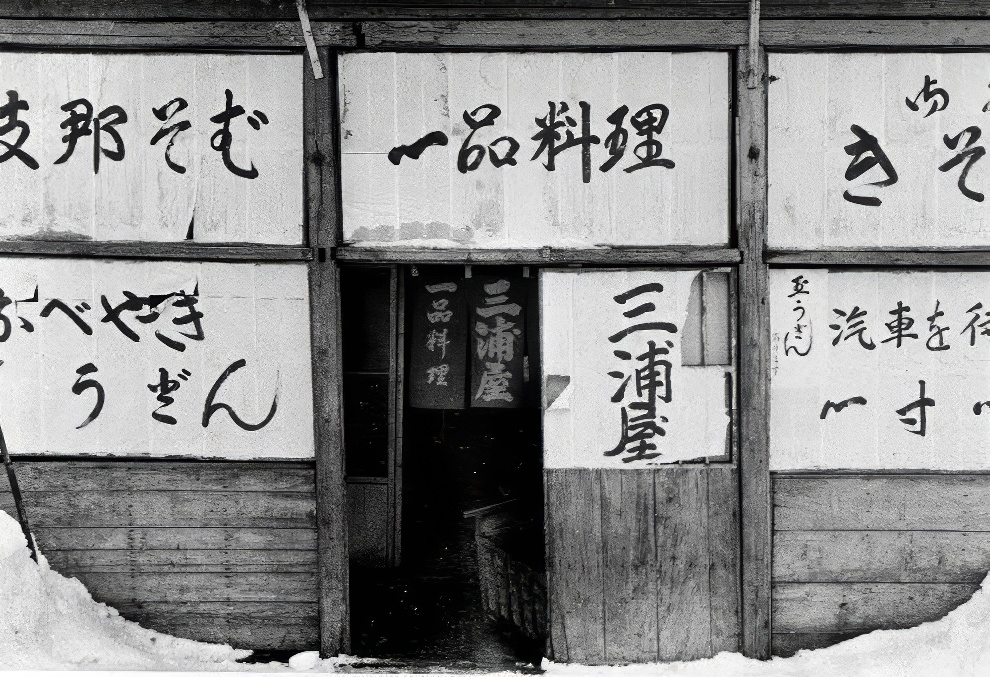 支那そば
一品料理
御
きそ
なべやき
うどん
一品料理
三浦屋
三浦屋
玉うどん
汽車を待
一寸